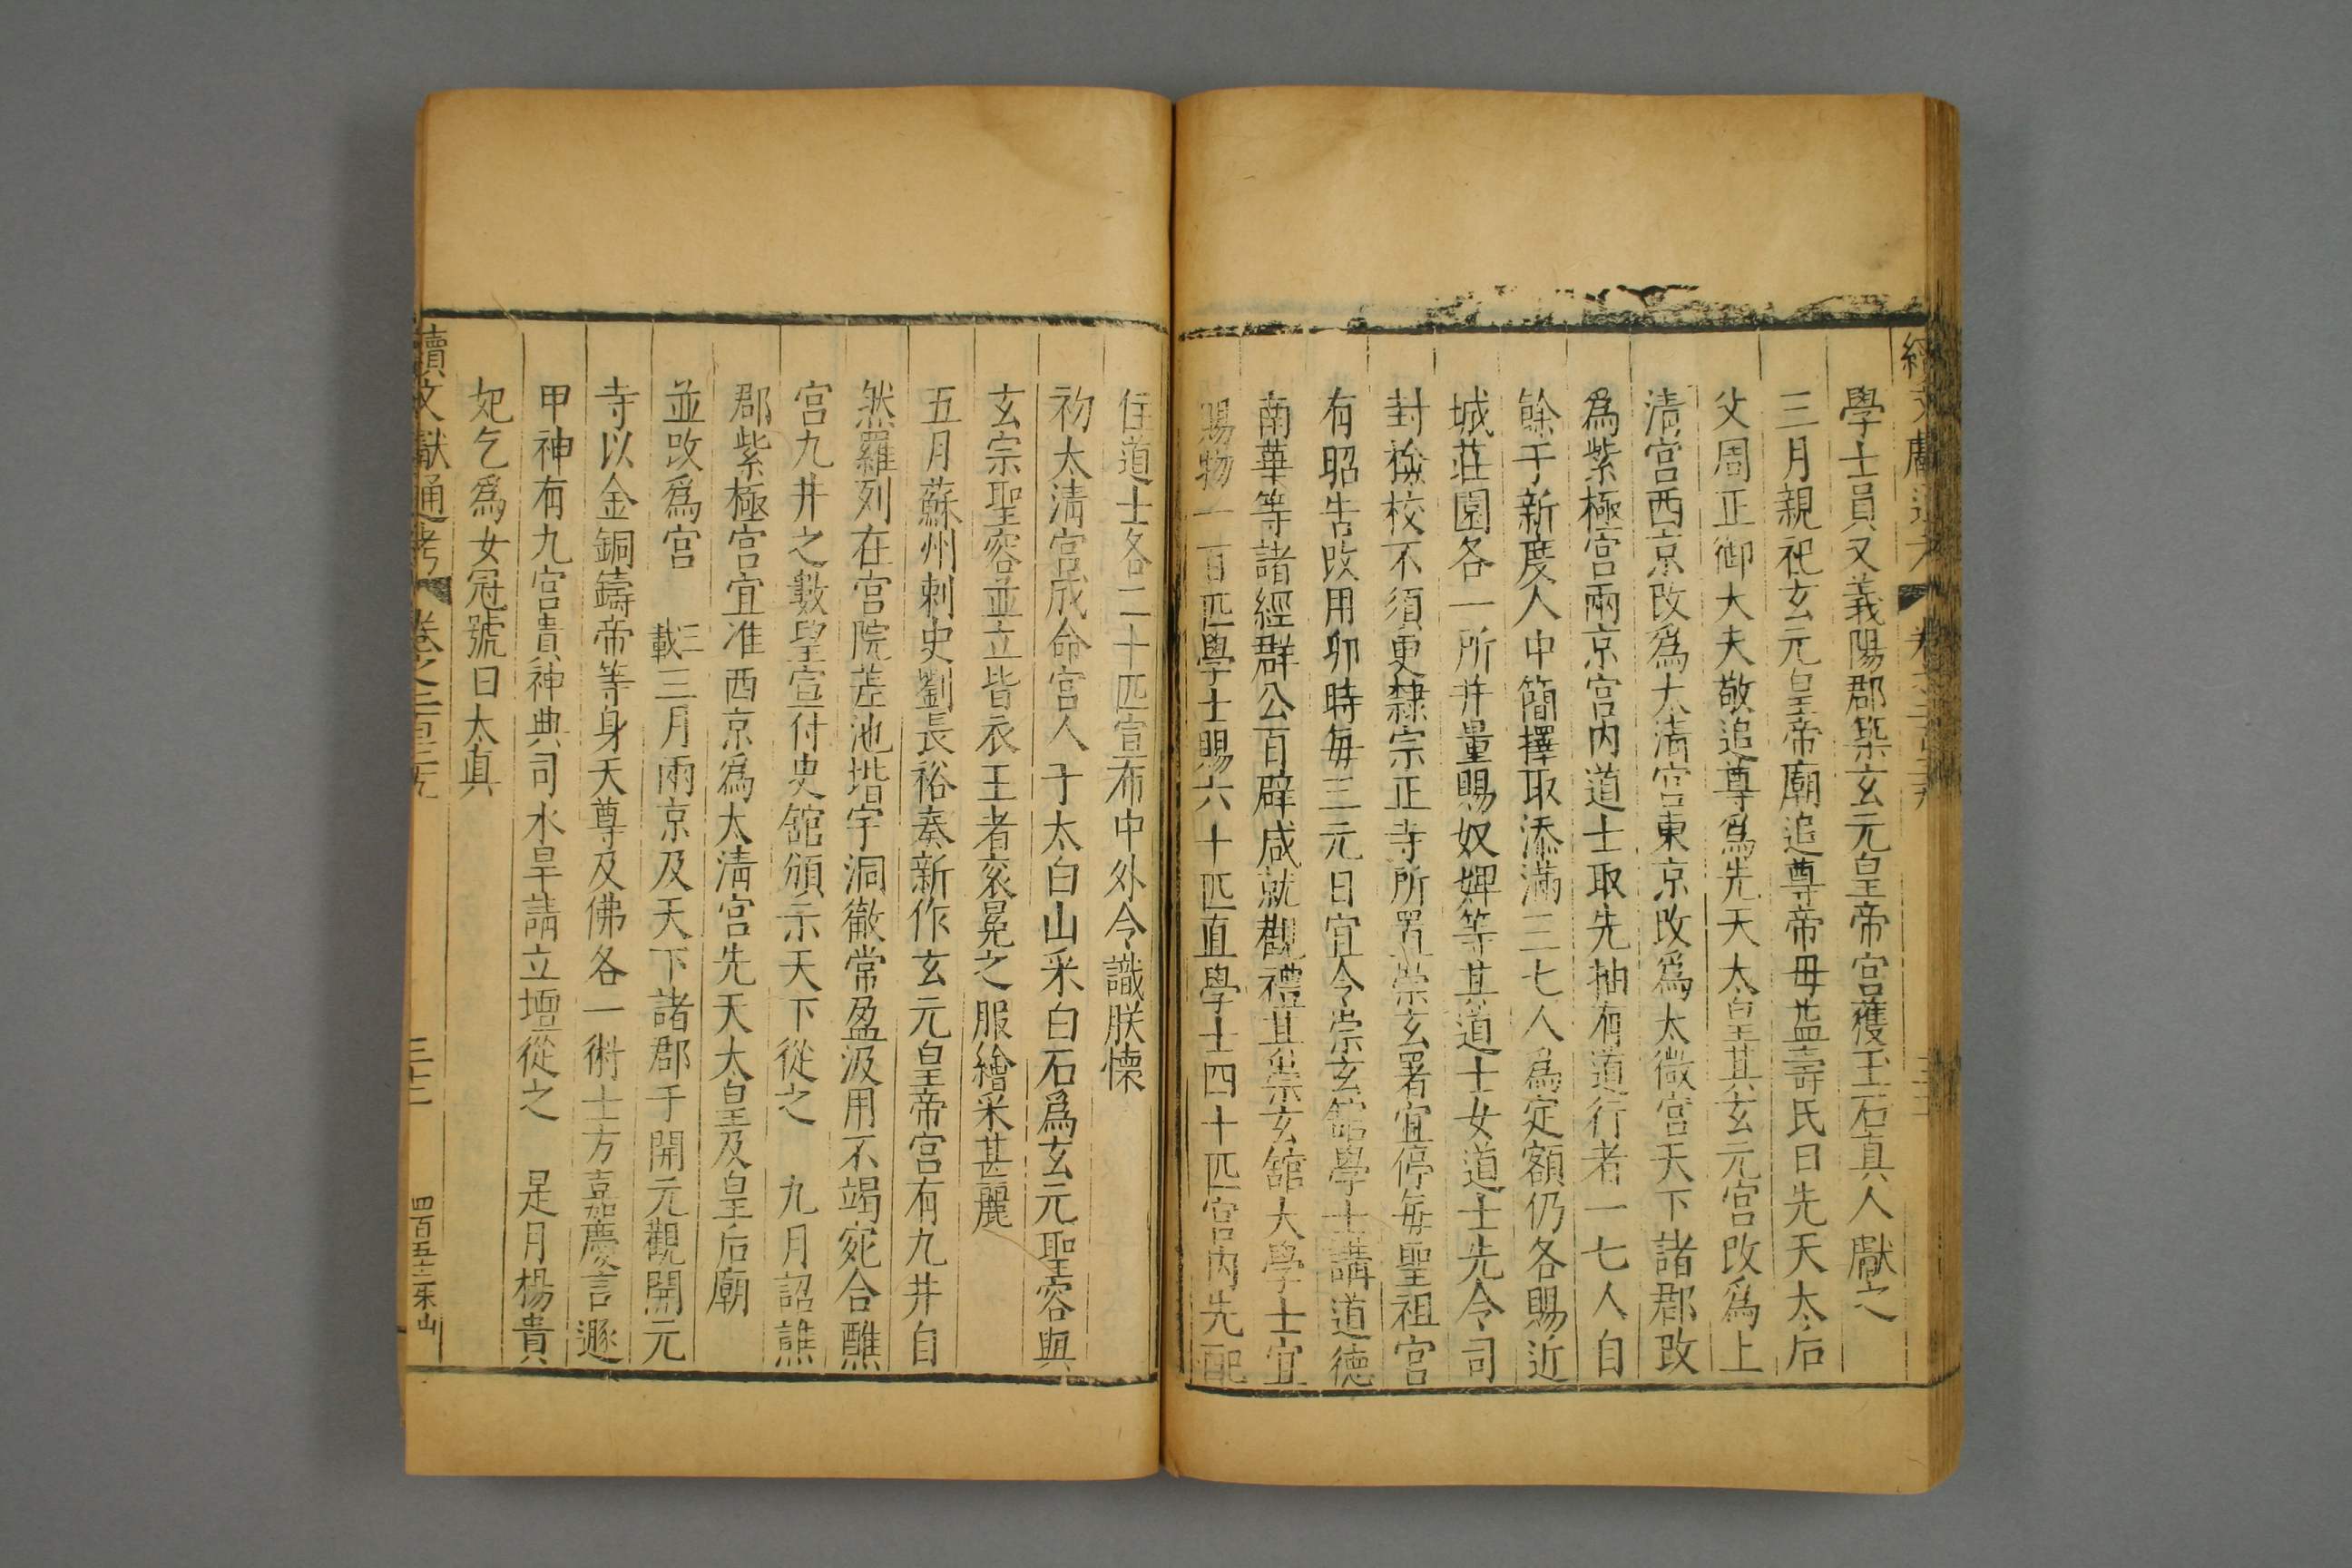 學士員又義陽郡築玄元皇帝宮獲玉石真人獻之
三月親祀玄元皇帝廟追尊帝母益壽氏曰先天太后
父周正御大夫敬追尊爲先天太皇其玄元宮改爲上
清宮西京改爲太清宮東京改爲太微宮天下諸郡改
爲紫極宮兩京宮內道士取先抽有道行者一七人自
餘于新度人中簡擇取添滿三七人爲定額仍各賜近
城莊園各一所并量賜奴婢等其道士女道士先令司
封檢校不須更隸宗正寺所置崇玄署宜停每聖祖宮
有昭告改用卯時每三元日宜令崇玄館學士講道德
南華等諸經群公百辟咸就觀禮其崇玄館大學士宜
賜物一百匹學士賜六十匹直學士四十匹宮內先配
住道士各二十匹宣布中外令識朕懷
初太清宮成命宮人于太白山采白石爲玄元聖容與
玄宗聖容並立皆衣王者衮冕之服繪采甚麗
五月蘇州刺史劉長裕奏新作玄元皇帝宮有九井自
然羅列在宮院荖池堦宇洞徹常盈汲用不竭宛合醮
宮九井之數望宣付史舘頒示天下從之 九月詔譙
郡紫極宮宜准西京爲太清宮先天太皇及皇后廟
並改爲宮 三載三月兩京及天下諸郡于開元觀開元
寺以金銅鑄帝等身天尊及佛各一術士方嘉慶言遯
甲神有九宮貴神典司水旱請立壇從之 是月楊貴
妃乞爲女冠號曰太真
續文獻通考 卷之二百三十九
三十二